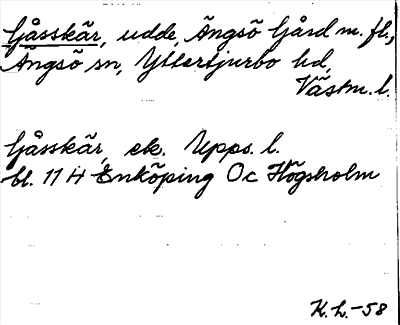 Gåsskär, udde, Ängsö Gård m. fl.,
Ängsö sn, Yttertjurbo hd,
Västm. l.
Gåsskär, ek. Upps. l.
bl. 11 H Enköping Oc Högsholm
K. L. -58